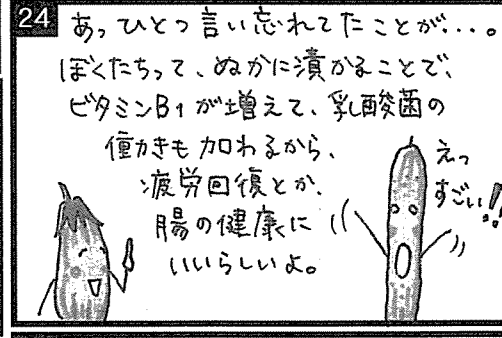 24
あっひとつ言い忘れてたことが...。
ぼくたちって、ぬかに漬かることで、
ビタミンB1が増えて、乳酸菌の
働きも加わるから、
疲労回復とか、
腸の健康に
いいらしいよ。
えっ
すごい!!